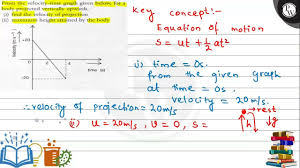 From the velocity-time graph given below, for a
body projected vertically upwards,
(i) find the velocity of projection
(ii) maximum height attained by the body
Velocity (ms⁻¹)
+20
0
2
4
time (s)
-20
Key concept:-
Equation of motion
S = ut + 1/2 at²
i) time = 0s.
from the given graph
at time = 0s,
velocity = 20m/s.
∴ velocity of projection = 20m/s
(ii) u = 20m/s, v = 0, s =
rest
h